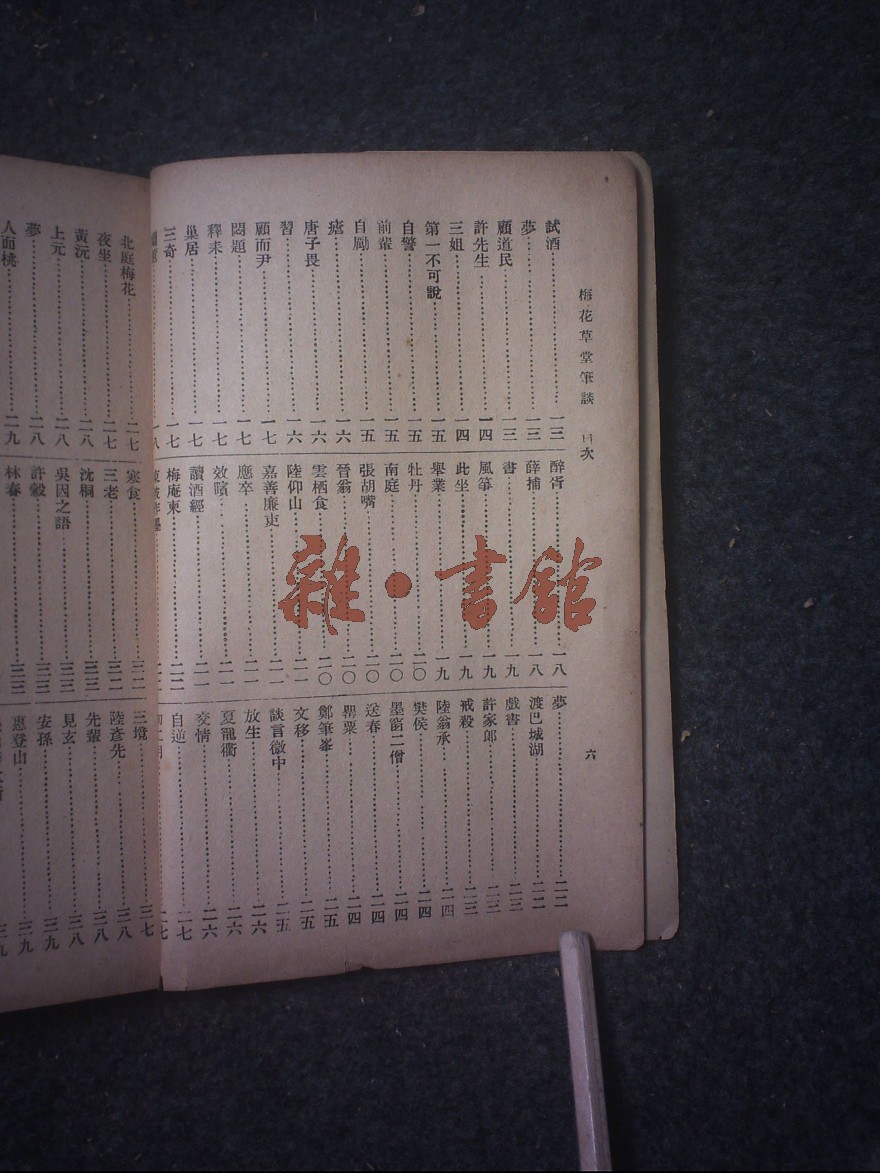 梅花草堂筆談 目次
六
試酒 一三
夢 一三
顧道民 一三
許先生 一四
三姐 一四
第一不可說 一五
自警 一五
前輩 一五
自勵 一五
瘧 一六
唐子畏 一六
習 一六
顧而尹 一七
悶題 一七
釋来 一七
巢居 一七
三奇 一七
一八
醉胥 一八
薛捕 一八
書 一九
風箏 一九
此坐 一九
舉業 一九
牡丹 二〇
南庭 二〇
張胡嘴 二〇
晉翁 二〇
雲栖食 二〇
陸仰山 二一
嘉善廉吏 二一
應卒 二一
效嚬 二一
讀酒經 二一
梅庵東 二二
夢 二二
渡巴城湖 二二
戲書 二三
許家郎 二三
戒殺 二三
陸翁承 二四
樊侯 二四
墨窗二僧 二四
送春 二四
罌粟 二四
鄭筆峯 二五
文移 二五
談言微中 二五
放生 二六
夏龍衢 二六
交情 二六
自逆 二七
二七
北庭梅花 二七
夜坐 二七
黃沅 二八
上元 二八
夢 二八
人面桃 二九
寒食 三二
三老 三二
沈桐 三三
吳因之語 三三
許穀 三三
林春 三三
三境 三七
陸彥先 三八
先輩 三八
見玄 三八
安孫 三九
惠登山 三九
雜·書館